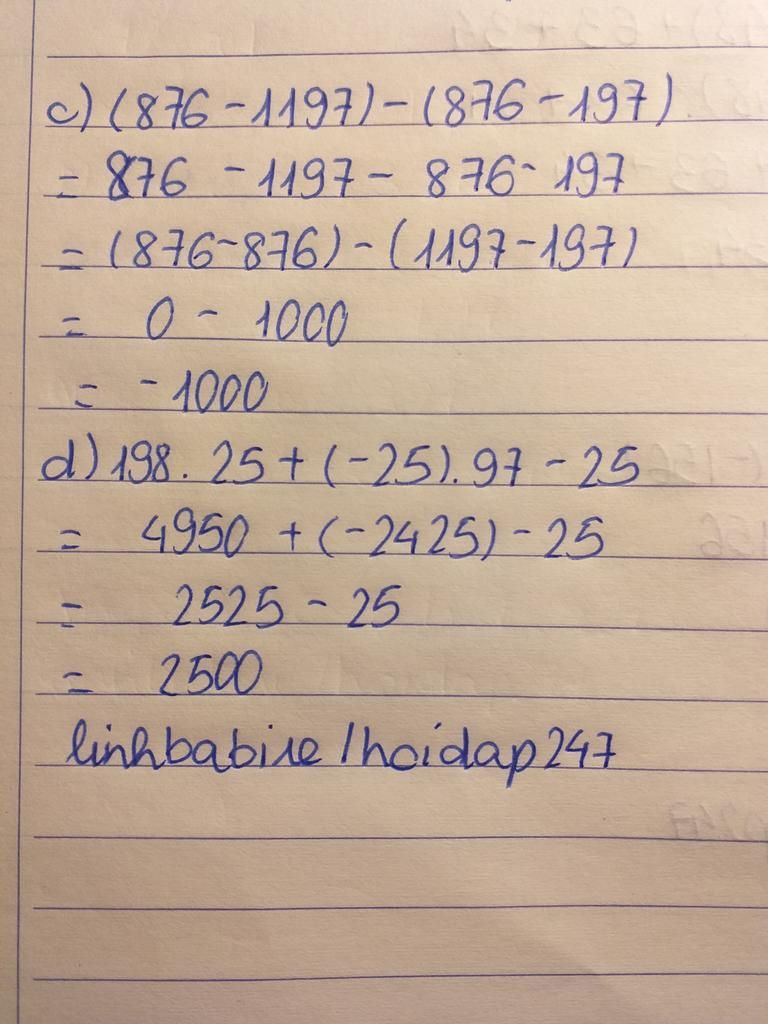 c) (876 - 1197) - (876 - 197)
= 876 - 1197 - 876 - 197
= (876 - 876) - (1197 - 197)
= 0 - 1000
= - 1000
d) 198. 25 + (-25). 97 - 25
= 4950 + (-2425) - 25
= 2525 - 25
= 2500
linhbabire / hoidap247